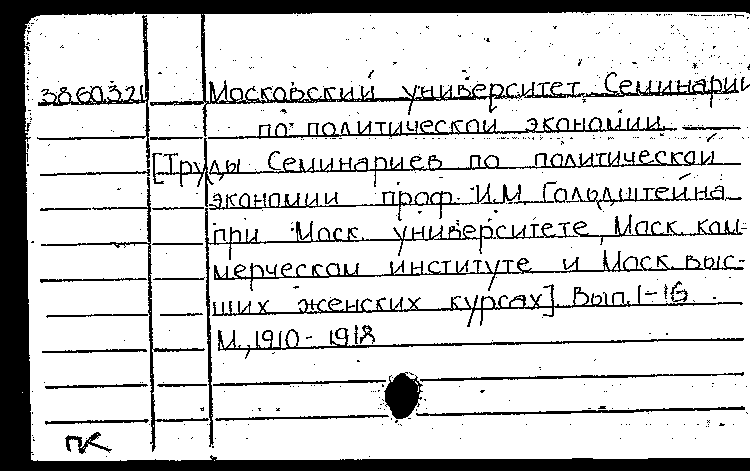 3860321 Московский университет. Семинарий
по политической экономии.
[Труды Семинариев по политической
экономии проф. И.М. Гольдштейна
при Моск. университете, Моск. ком-
мерческом институте и Моск. выс-
ших женских курсах] Вып. 1-16
М., 1910-1918
ПК